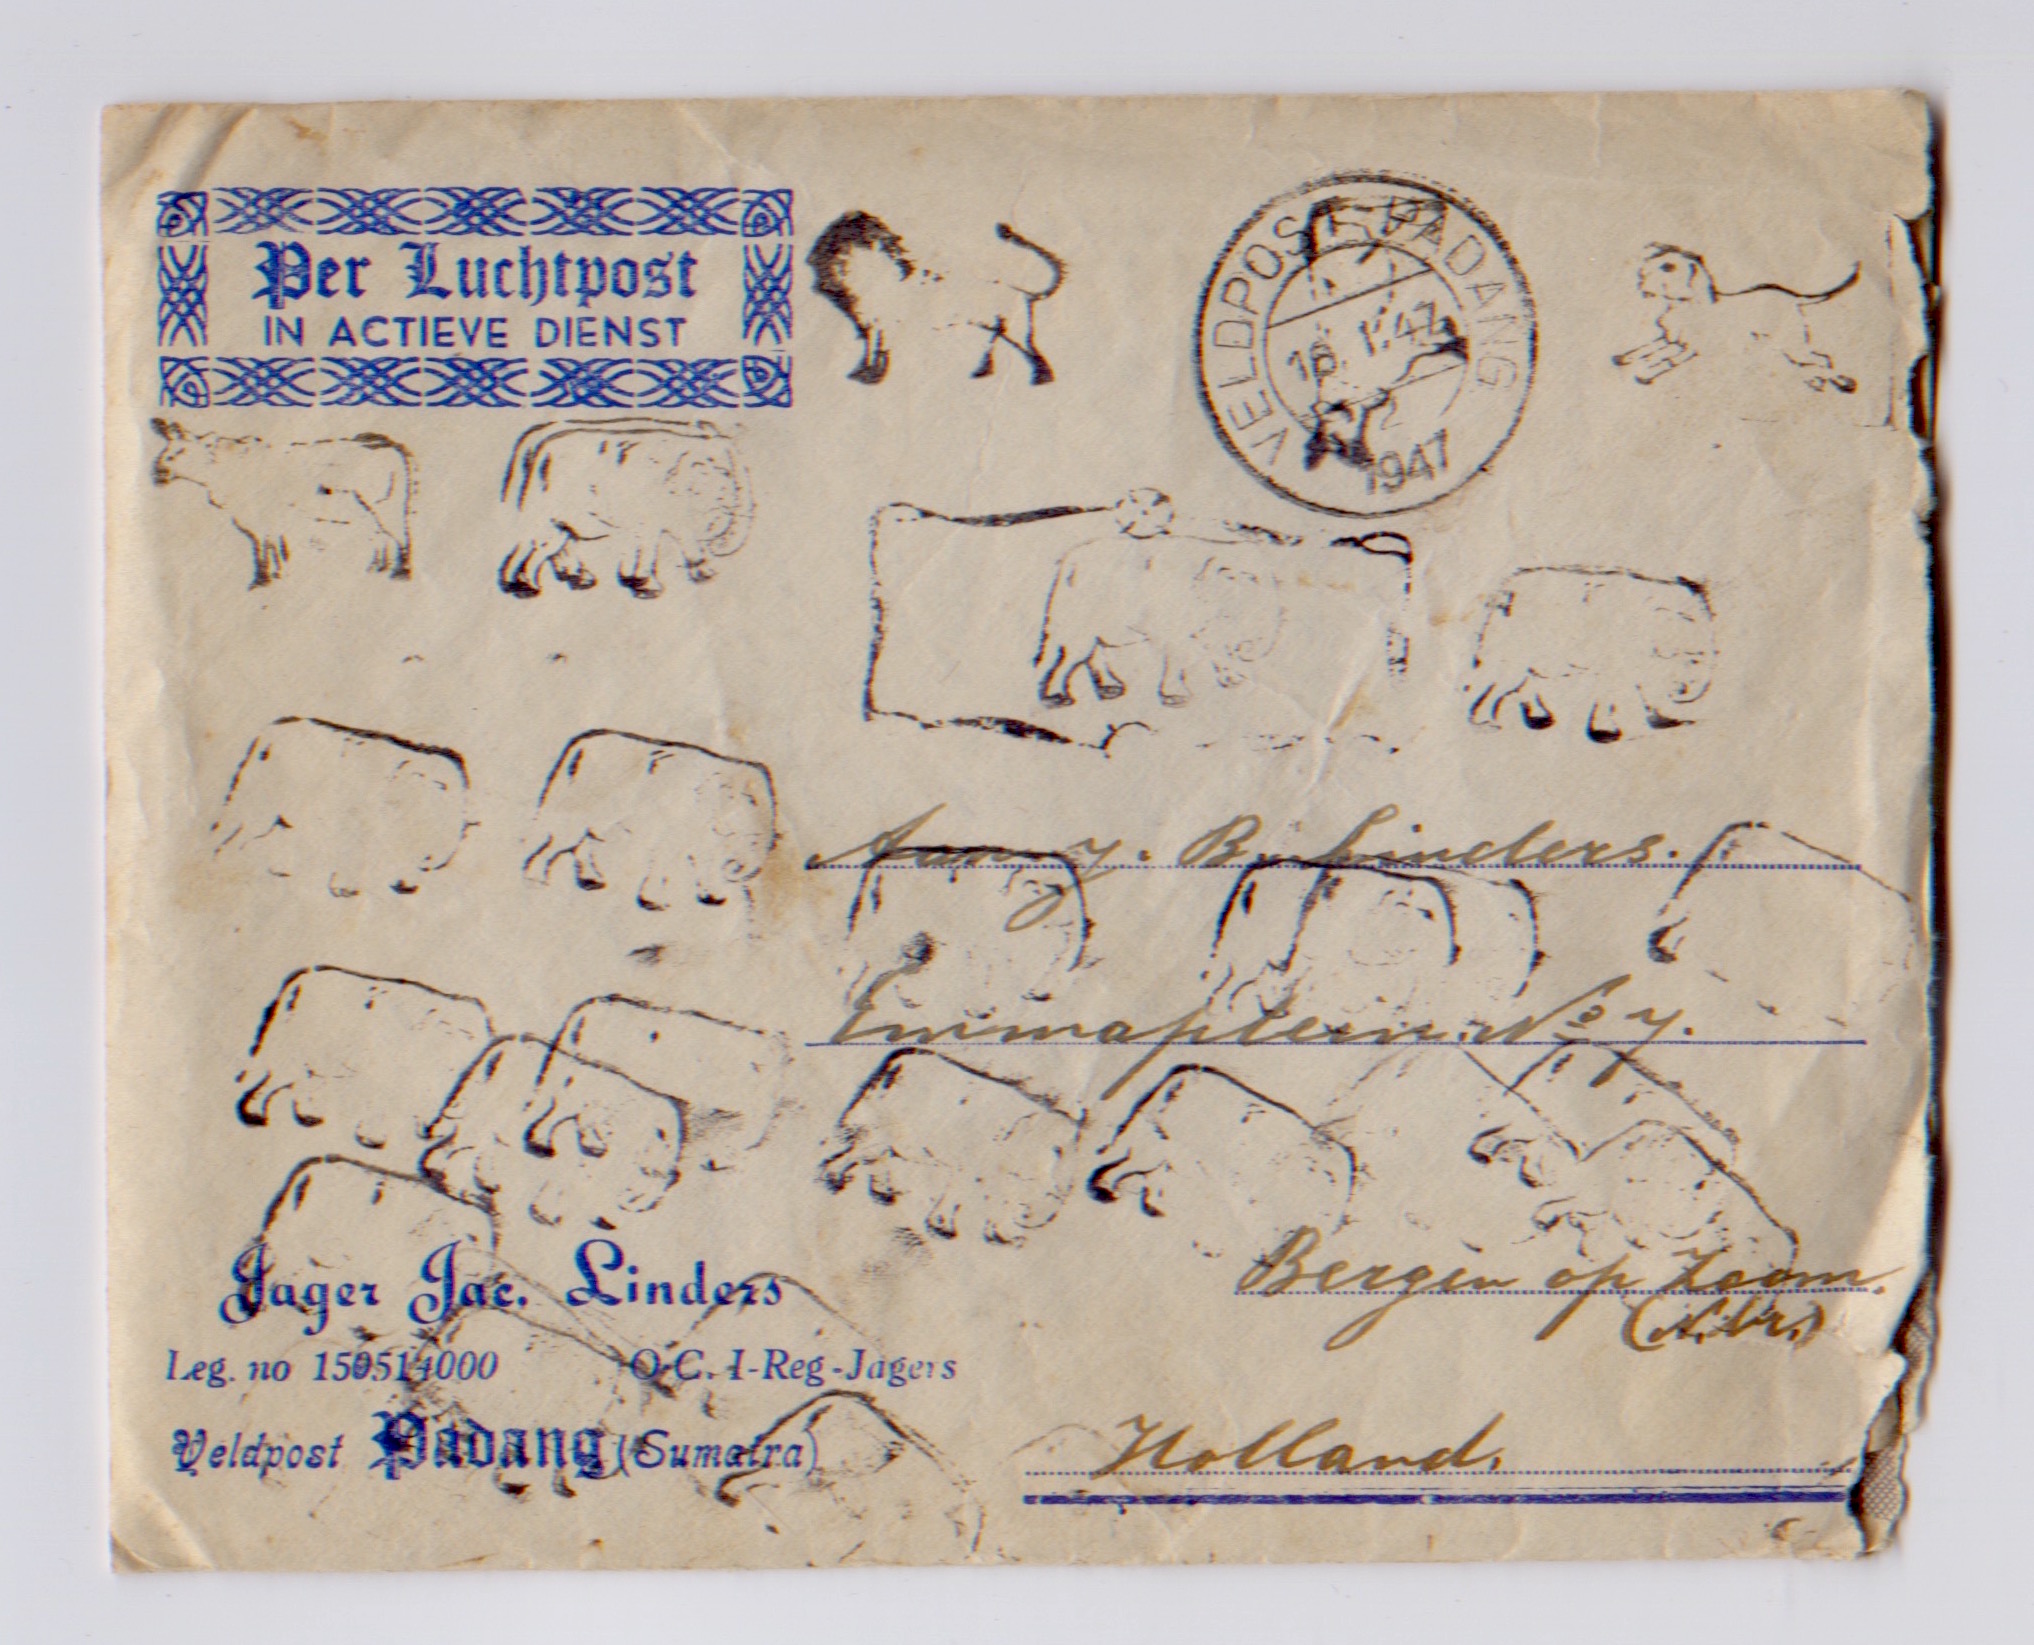 Per Luchtpost
IN ACTIEVE DIENST
VELDPOST-PADANG
16.1.47
1947
Aan y. B. Linders.
Emmaplein No 7.
Bergen op Zoom.
(N.Br.)
Holland.
Jager Jac. Linders
Leg. no 150514000 O.C. I-Reg-Jagers
Veldpost Padang (Sumatra)